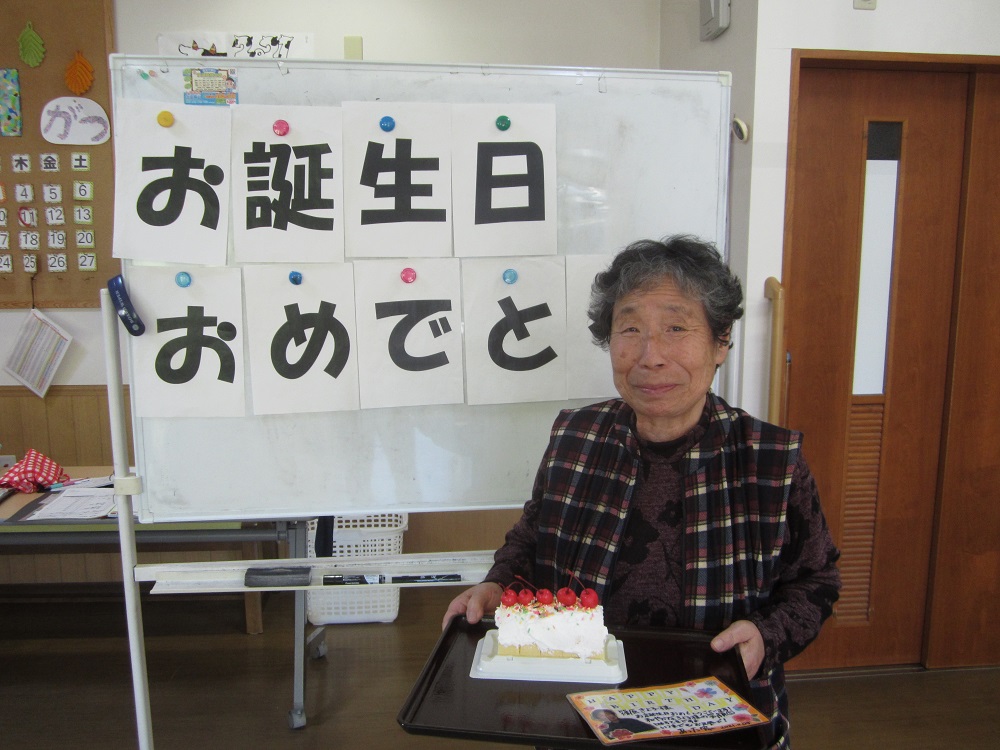 お誕生日
おめでと
がつ
木 金 土
4 5 6
11 12 13
18 19 20
24 25 26 27
HAPPY
BIRTHDAY